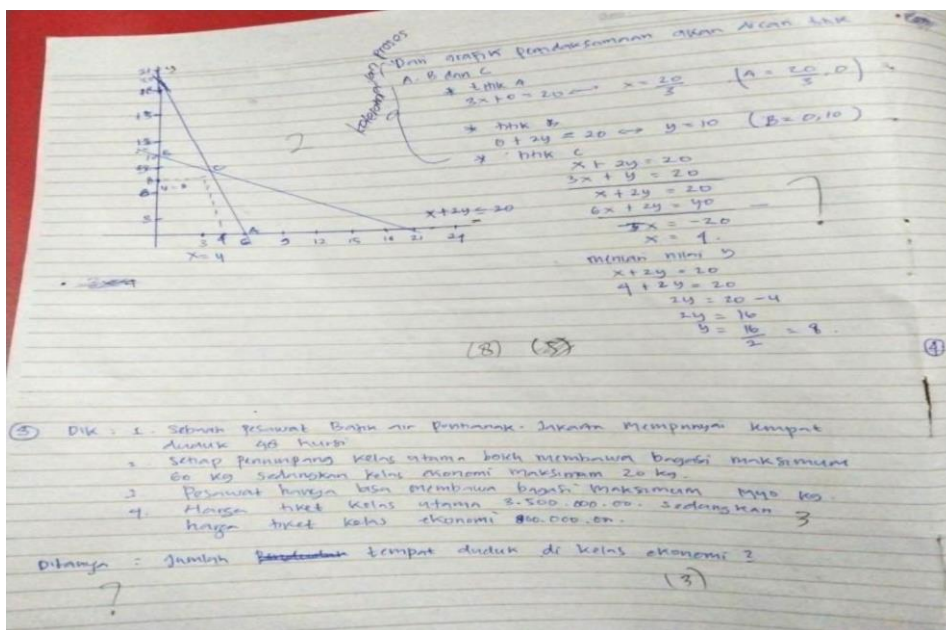 Dari grafik pendaksamaan akan dicari titik
A. B dan C
* titik A
3x + 0 = 20 x = 20/3 (A = 20/3, 0)
* titik B
0 + 2y = 20 y = 10 (B = 0,10)
* titik C
x + 2y = 20
3x + y = 20
x + 2y = 20
6x + 2y = 40
-5x = -20
x = 4.
mencari nilai y
x + 2y = 20
4 + 2y = 20
2y = 20 - 4
2y = 16
y = 16/2 = 8.
x + 2y = 20
3 9 12 15 18 21 24
x = 4
2
?
(8)
4
5 Dik : 1. Sebuah pesawat Batik air Pontianak - Jakarta mempunyai tempat
duduk 48 kursi
2 setiap penumpang kelas utama boleh membawa bagasi maksimum
60 kg sedangkan kelas ekonomi maksimum 20 kg.
3 Pesawat hanya bisa membawa bagasi maksimum 1440 kg.
4. Harga tiket kelas utama 3.500.000.00. sedangkan
harga tiket kelas ekonomi 800.000.00.
3
Ditanya = Jumlah tempat duduk di kelas ekonomi ?
?
(3)